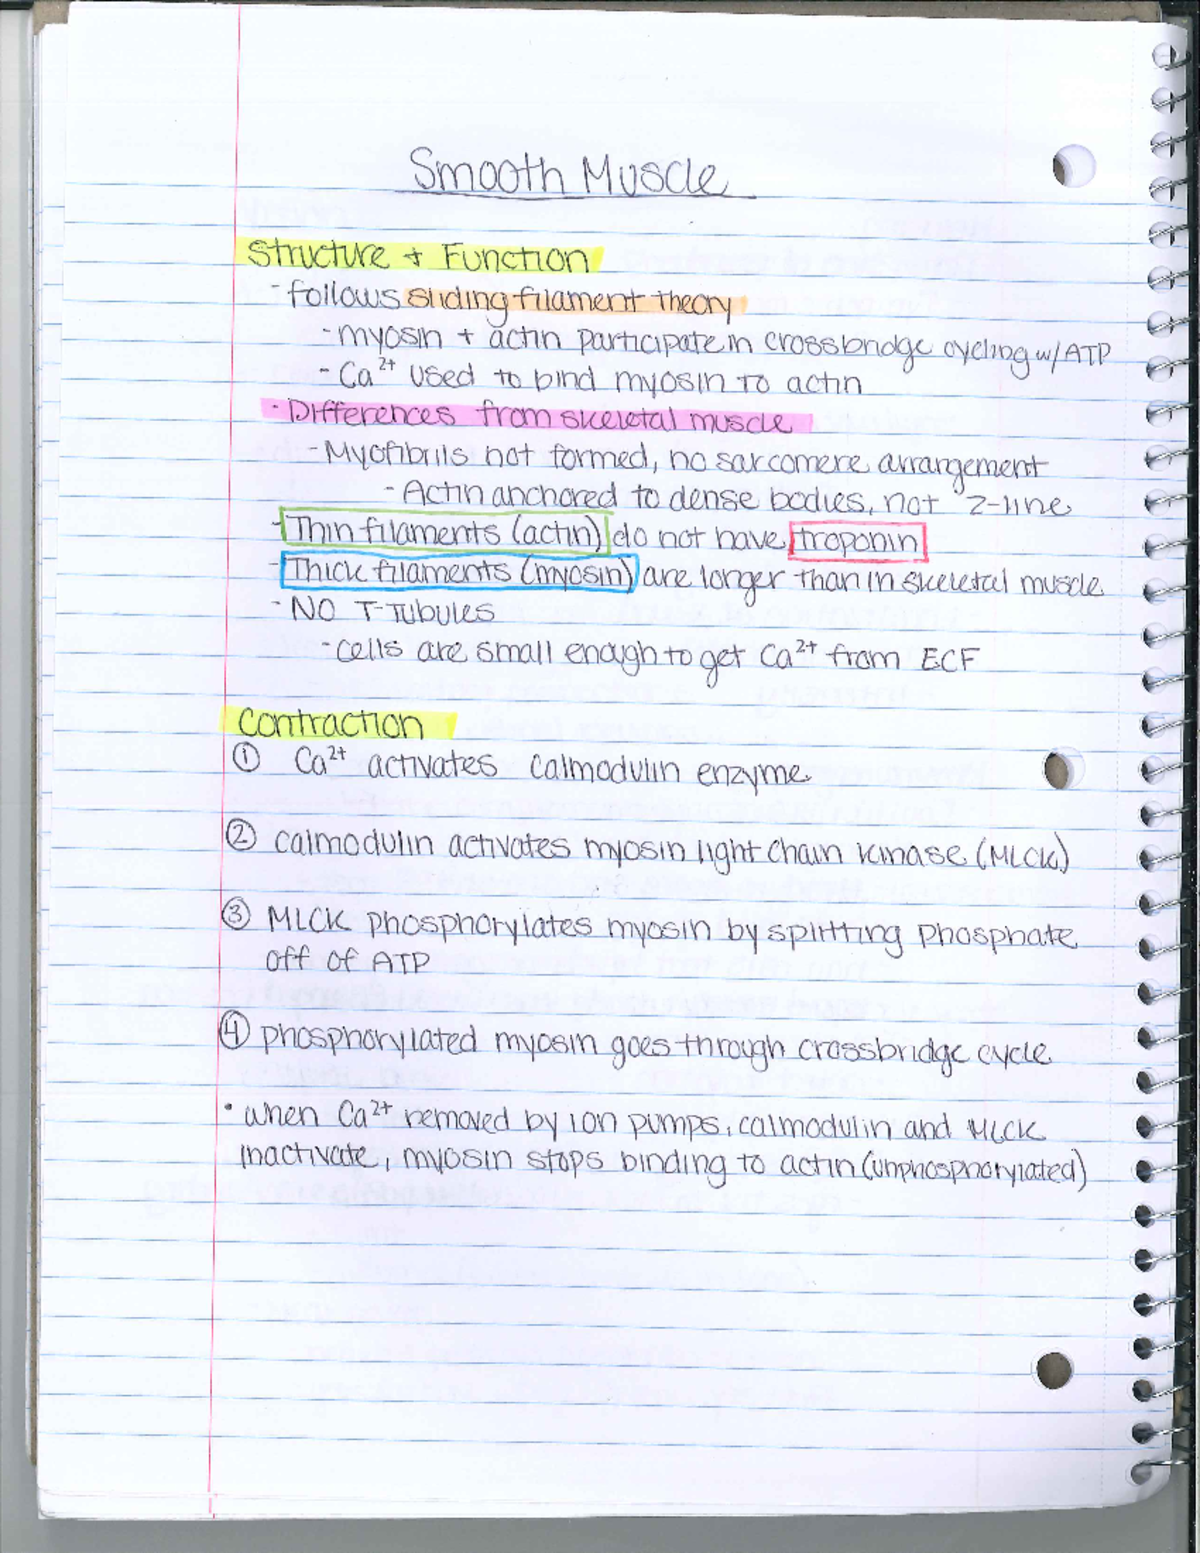 Smooth Muscle
Structure + Function
- follows sliding filament theory
- myosin + actin participate in crossbridge cycling w/ ATP
- Ca²⁺ used to bind myosin to actin
- Differences from skeletal muscle
- Myofibrils not formed, no sarcomere arrangement
- Actin anchored to dense bodies, not Z-line
- Thin filaments (actin) do not have troponin
- Thick filaments (myosin) are longer than in skeletal muscle
- NO T-Tubules
- cells are small enough to get Ca²⁺ from ECF
Contraction
① Ca²⁺ activates calmodulin enzyme
② calmodulin activates myosin light chain kinase (MLCK)
③ MLCK phosphorylates myosin by splitting phosphate
off of ATP
④ phosphorylated myosin goes through crossbridge cycle
• when Ca²⁺ removed by ion pumps, calmodulin and MLCK
inactivate, myosin stops binding to actin (unphosphorylated)